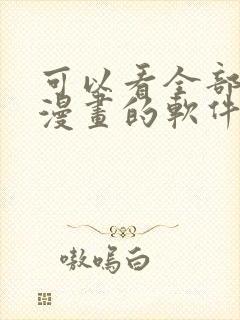 可以看全部
漫畫的軟件
嗷嗚白